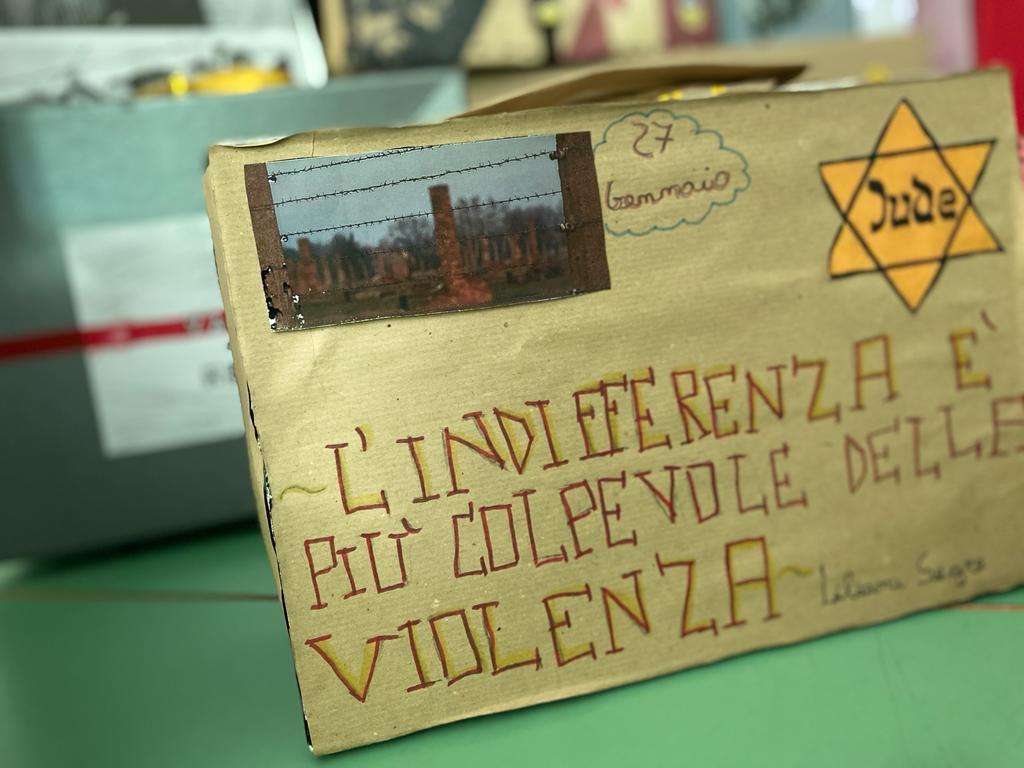 27
Gennaio
Jude
~L'INDIFFERENZA E'
PIÙ COLPEVOLE DELLA
VIOLENZA~
Liliana Segre